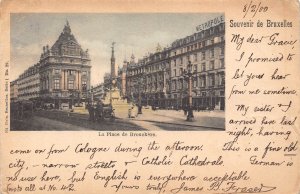 8/2/00
Souvenir de Bruxelles
METROPOLE
My dear Grace,
I promised
to let you hear
from me sometime
My sister &
arrived here last
night, having
La Place de Brouckère.
come on from Cologne during the afternoon. This is a fine old
city - narrow streets & Catholic Cathedrals. German is
no use here, but English is everywhere acceptable
James B. Fraser.